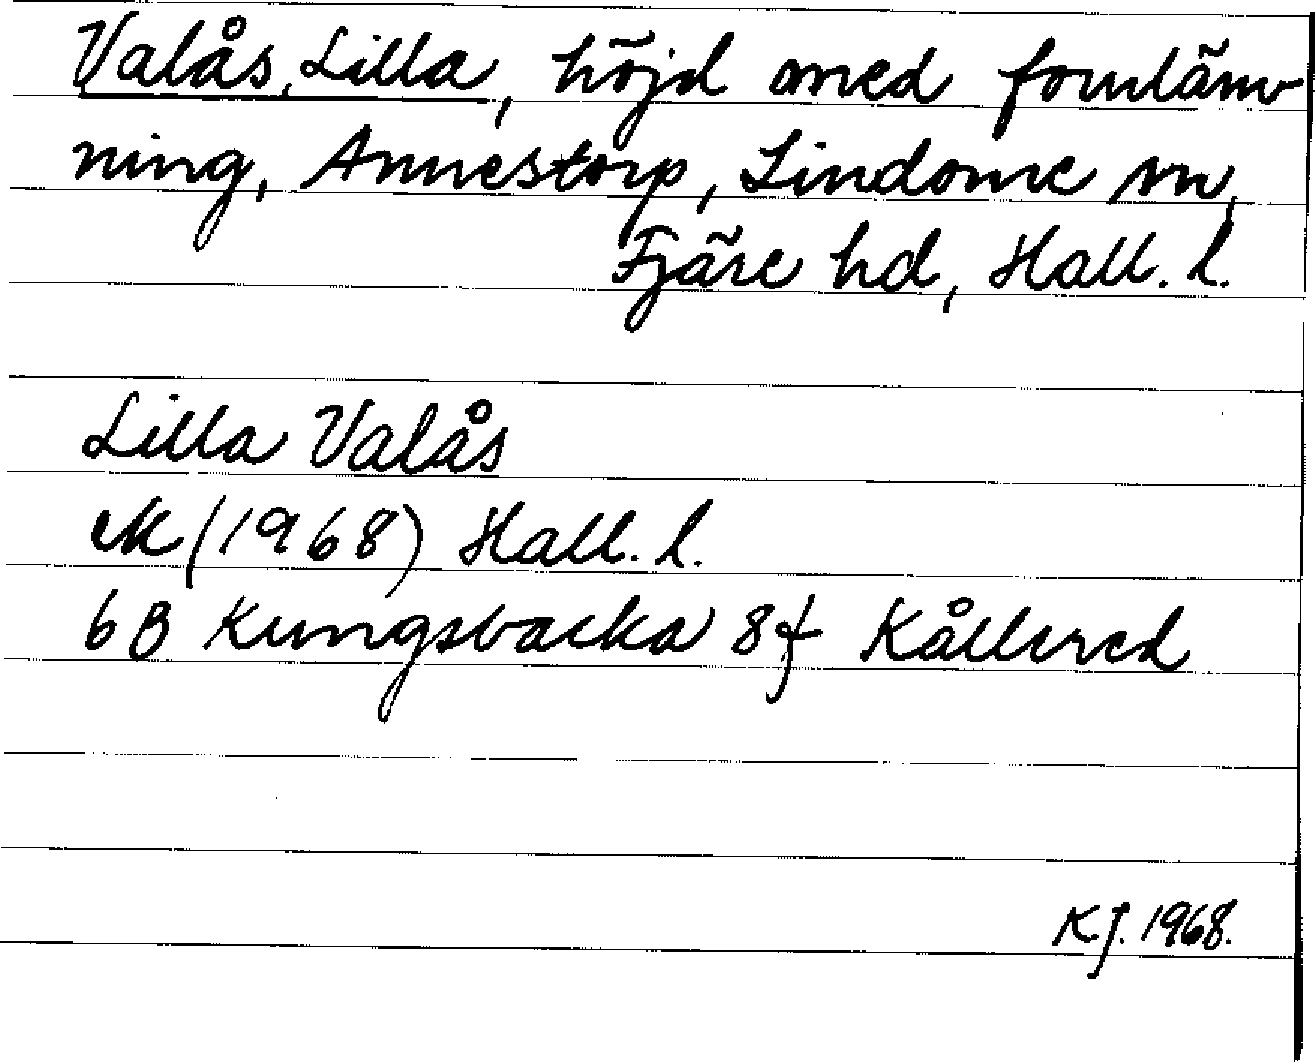 Valås, Lilla, höjd med fornläm-
ning, Annestorp, Lindome sn,
Fjäre hd, Hall. l.
Lilla Valås
ek (1968) Hall. l.
6B Kungsbacka 8f Kållered
KJ. 1968.